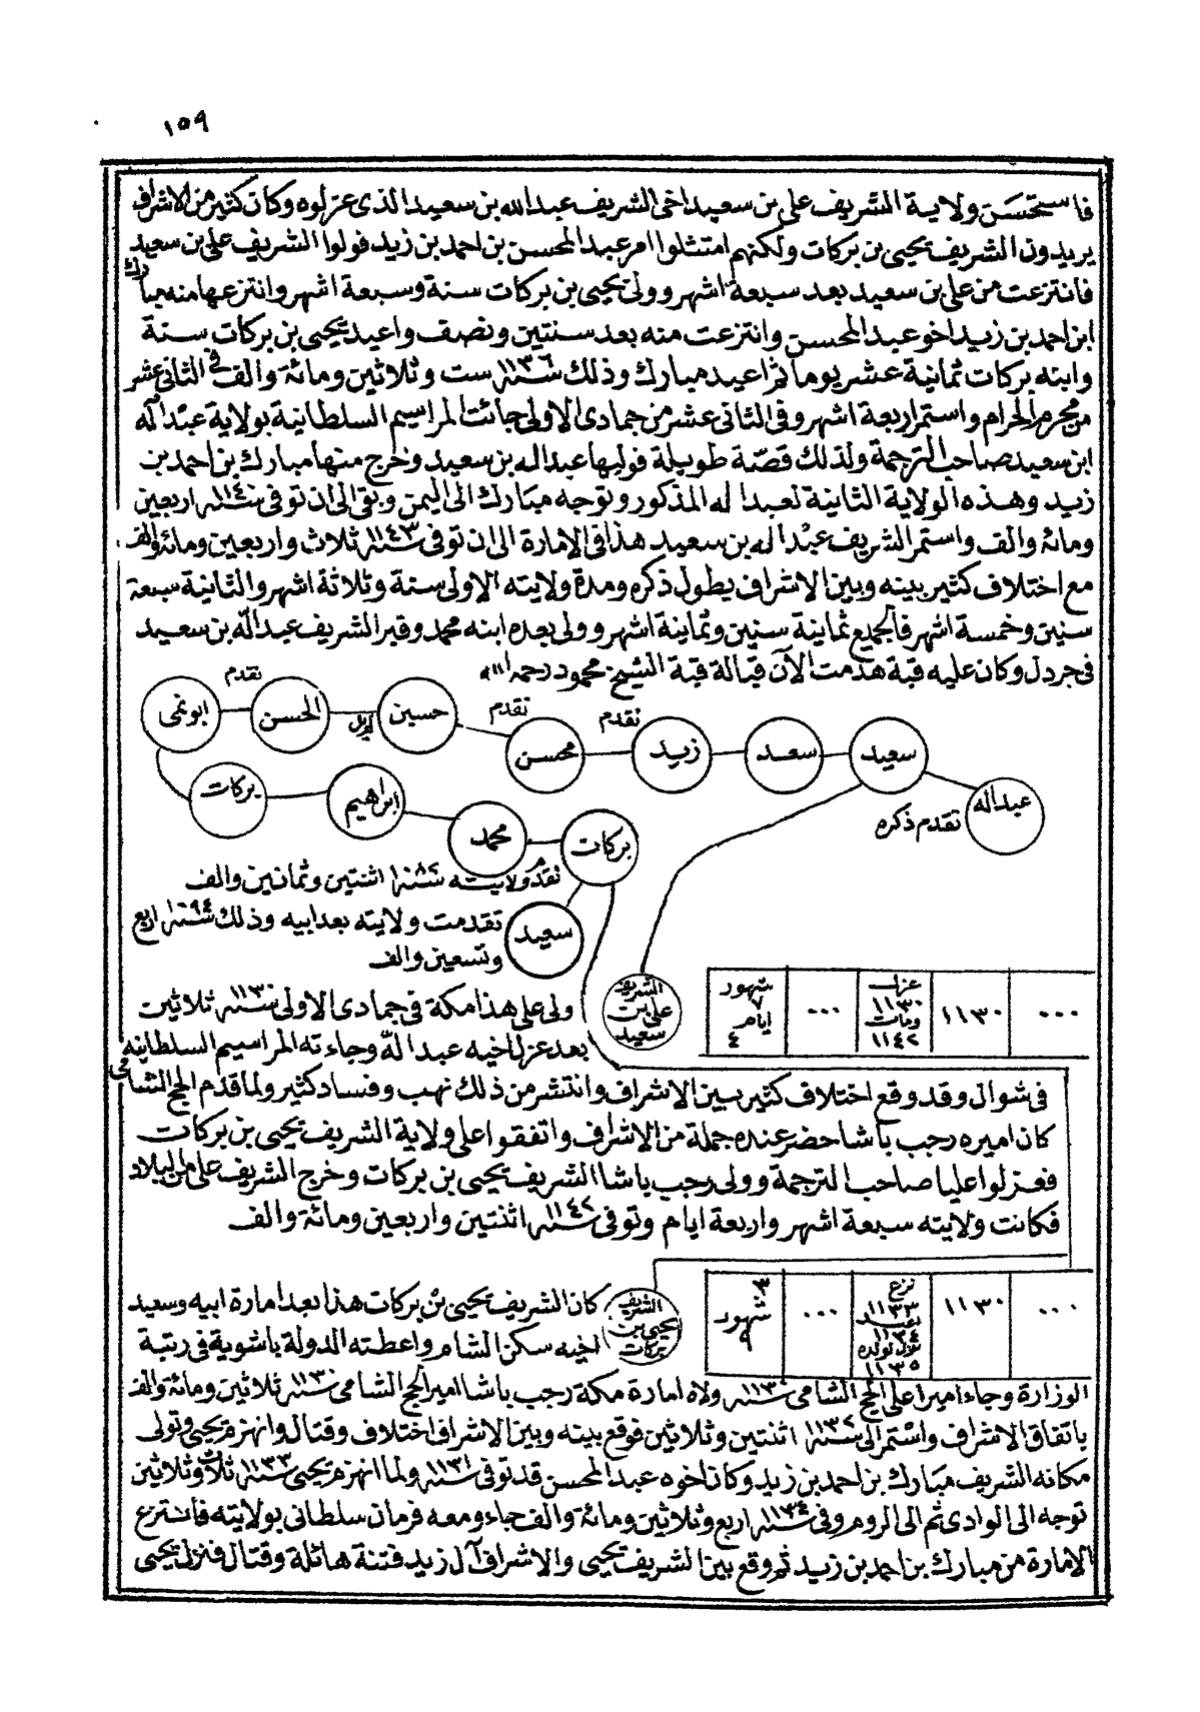 ١٥٩
فاستحسن ولاية الشريف على بن سعيد اخى الشريف عبد الله بن سعيد الذى عزلوه وكان كثير من الاشراف
يريدون الشريف يحيى بن بركات ولكنهم امتثلوا امر عبد المحسن بن احمد بن زيد فولوا الشريف على بن سعيد
فانتزعت من على بن سعيد بعد سبعة اشهر وولى يحيى بن بركات سنة وسبعة اشهر وانتزعها منه مبارك
ابن احمد بن زيد اخو عبد المحسن وانتزعت منه بعد سنتين ونصف واعيد يحيى بن بركات سنة
وابنه بركات ثمانية عشر يوما ثم اعيد مبارك وذلك سنة ١١٣٦ ست وثلاثين ومائة والف فى الثانى عشر
من محرم الحرام واستمر اربعة اشهر وفى الثانى عشر من جمادى الاولى جائت المراسيم السلطانية بولاية عبد الله
ابن سعيد صاحب الترجمة ولذلك قصة طويلة فوليها عبد الله بن سعيد وخرج منها مبارك بن احمد بن
زيد وهذه الولاية الثانية لعبد الله المذكور وتوجه مبارك الى اليمن وبقى الى ان توفى سنة ١١٤٠ اربعين
ومائة والف واستمر الشريف عبد الله بن سعيد هذا فى الامارة الى ان توفى سنة ١١٤٣ ثلاث واربعين ومائة والف
مع اختلاف كثير بينه وبين الاشراف يطول ذكره ومدة ولايته الاولى سنة وثلاثة اشهر والثانية سبعة
سنين وخمسة اشهر فالجميع ثمانية سنين وثمانية اشهر وولى بعده ابنه محمد وقبر الشريف عبد الله بن سعيد
فى جردل وكان عليه قبة هدمت الآن قبالة قبة الشيخ محمود رحمه الله
ابو نمى
تقدم
الحسن
حسين
تقدم
محسن
تقدم
زيد
سعد
سعيد
عبد الله
تقدم ذكره
بركات
ابراهيم
محمد
بركات
تقدم ولايته سنة اثنتين وثمانين والف
سعيد
تقدمت ولايته بعد ابيه وذلك سنة ٩٤ اربع
وتسعين والف
٠٠٠
١١٣٠
عزل ١١٣٠ ومات ١١٤٢
٠٠٠
شهور ٧ ايام ٤
الشريف على بن سعيد
ولى على هذا مكة فى جمادى الاولى سنة ١١٣٠ ثلاثين
بعد عزل اخيه عبد الله وجاءته المراسيم السلطانية
فى شوال وقد وقع اختلاف كثير بين الاشراف وانتشر من ذلك نهب وفساد كثير ولما قدم الحج الشامى
كان اميره رجب باشا حضر عنده جملة من الاشراف واتفقوا على ولاية الشريف يحيى بن بركات
فعزلوا عليا صاحب الترجمة وولى رجب باشا الشريف يحيى بن بركات وخرج الشريف على من البلاد
فكانت ولايته سبعة اشهر واربعة ايام وتوفى سنة ١١٤٢ اثنتين واربعين ومائة والف
٠٠٠
١١٣٠
نزع ١١٣٣ اعيد ١١٣٤ نزل لولده ١١٣٥
٠٠٠
٣ شهور ٩
الشريف يحيى بن بركات
كان الشريف يحيى بن بركات هذا بعد امارة ابيه وسعيد
اخيه سكن الشام واعطته الدولة باشوية فى رتبة
الوزارة وجاء اميرا على الحج الشامى سنة ١١٣٠ ولاه امارة مكة رجب باشا امير الحج الشامى سنة ١١٣٠ ثلاثين ومائة والف
باتفاق الاشراف واستمر الى سنة ١١٣٢ اثنتين وثلاثين فوقع بينه وبين الاشراف اختلاف وقتال وانهزم يحيى وتولى
مكانه الشريف مبارك بن احمد بن زيد وكان اخوه عبد المحسن قد توفى سنة ١١٣١ ولما انهزم يحيى سنة ١١٣٣ ثلاث وثلاثين
توجه الى الوادى ثم الى الروم وفى سنة ١١٣٤ اربع وثلاثين ومائة والف جاء ومعه فرمان سلطانى بولايته فانتزع
الامارة من مبارك بن احمد بن زيد ثم وقع بين الشريف يحيى والاشراف آل زيد فتنة هائلة وقتال فنزل يحيى